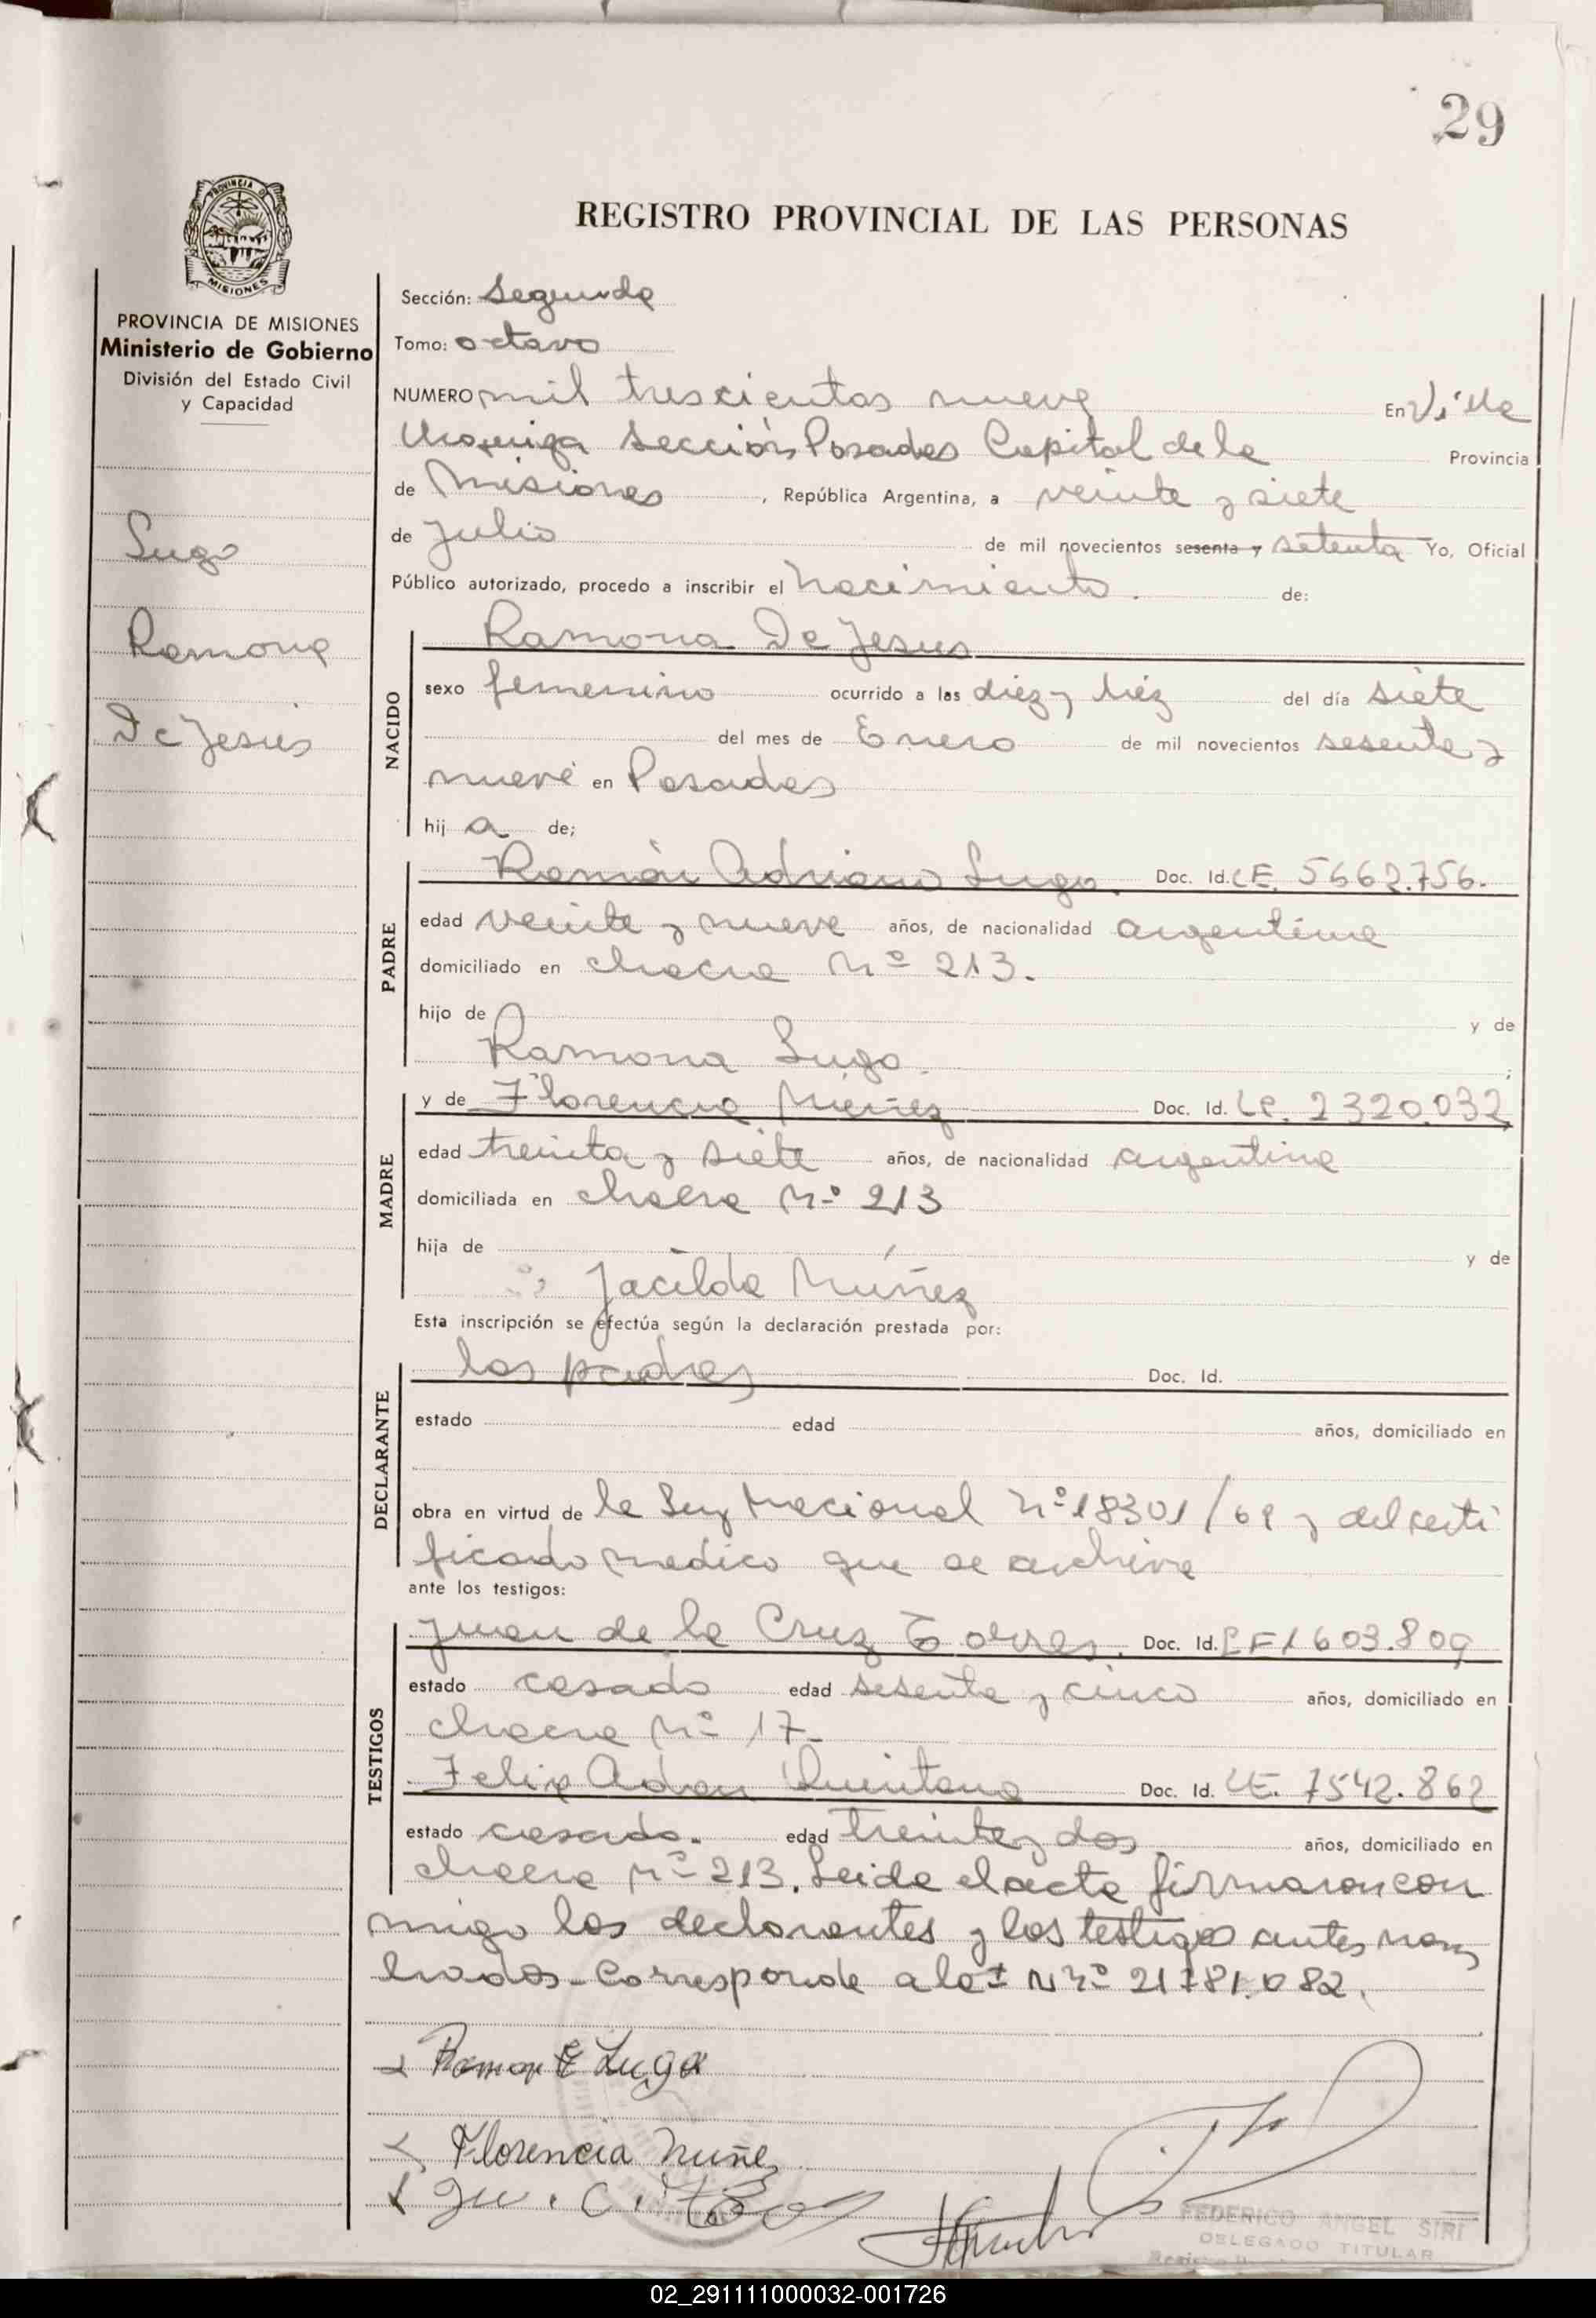 29
REGISTRO PROVINCIAL DE LAS PERSONAS
PROVINCIA DE MISIONES
Ministerio de Gobierno
División del Estado Civil
y Capacidad
Lugo
Ramona
De Jesús
Sección: Segunda
Tomo: octavo
NUMERO mil trescientos nueve En Villa
Urquiza Sección Posadas Capital de la Provincia
de Misiones, República Argentina, a veinte y siete
de Julio de mil novecientos sesenta y setenta Yo, Oficial
Público autorizado, procedo a inscribir el Nacimiento. de:
NACIDO
Ramona De Jesus
sexo femenino ocurrido a las diez y diéz del día siete
del mes de Enero de mil novecientos sesenta y
nueve en Posadas
hij a de;
PADRE
Ramón Adriano Lugo. Doc. Id. LE. 5662.756.
edad veinte y nueve años, de nacionalidad argentina
domiciliado en chacra Nº 213.
hijo de y de
Ramona Lugo.
MADRE
y de Florencia Núñez Doc. Id. LC. 2320.032,
edad treinta y siete años, de nacionalidad argentina
domiciliada en chacra Nº 213
hija de y de
Jacilda Núñez
Esta inscripción se efectúa según la declaración prestada por:
DECLARANTE
los padres Doc. Id.
estado edad años, domiciliado en
obra en virtud de la Ley Nacional Nº 18301/69 y del certi
ficado medico que se archiva
ante los testigos:
TESTIGOS
Juan de la Cruz Torres. Doc. Id. LE 1603.809
estado casado edad sesenta y cinco años, domiciliado en
chacra Nº 17.
Felix Adan Quintana Doc. Id. LE. 7542.862
estado casado. edad treinta y dos años, domiciliado en
chacra Nº 213. Leida el acta firmaron con
migo los declarantes y los testigos antes nom
brados. Corresponde a la Nº 21781.082.
Ramon Lugo
Florencia Nuñez
FEDERICO ANGEL SIRI
DELEGADO TITULAR
02_291111000032-001726